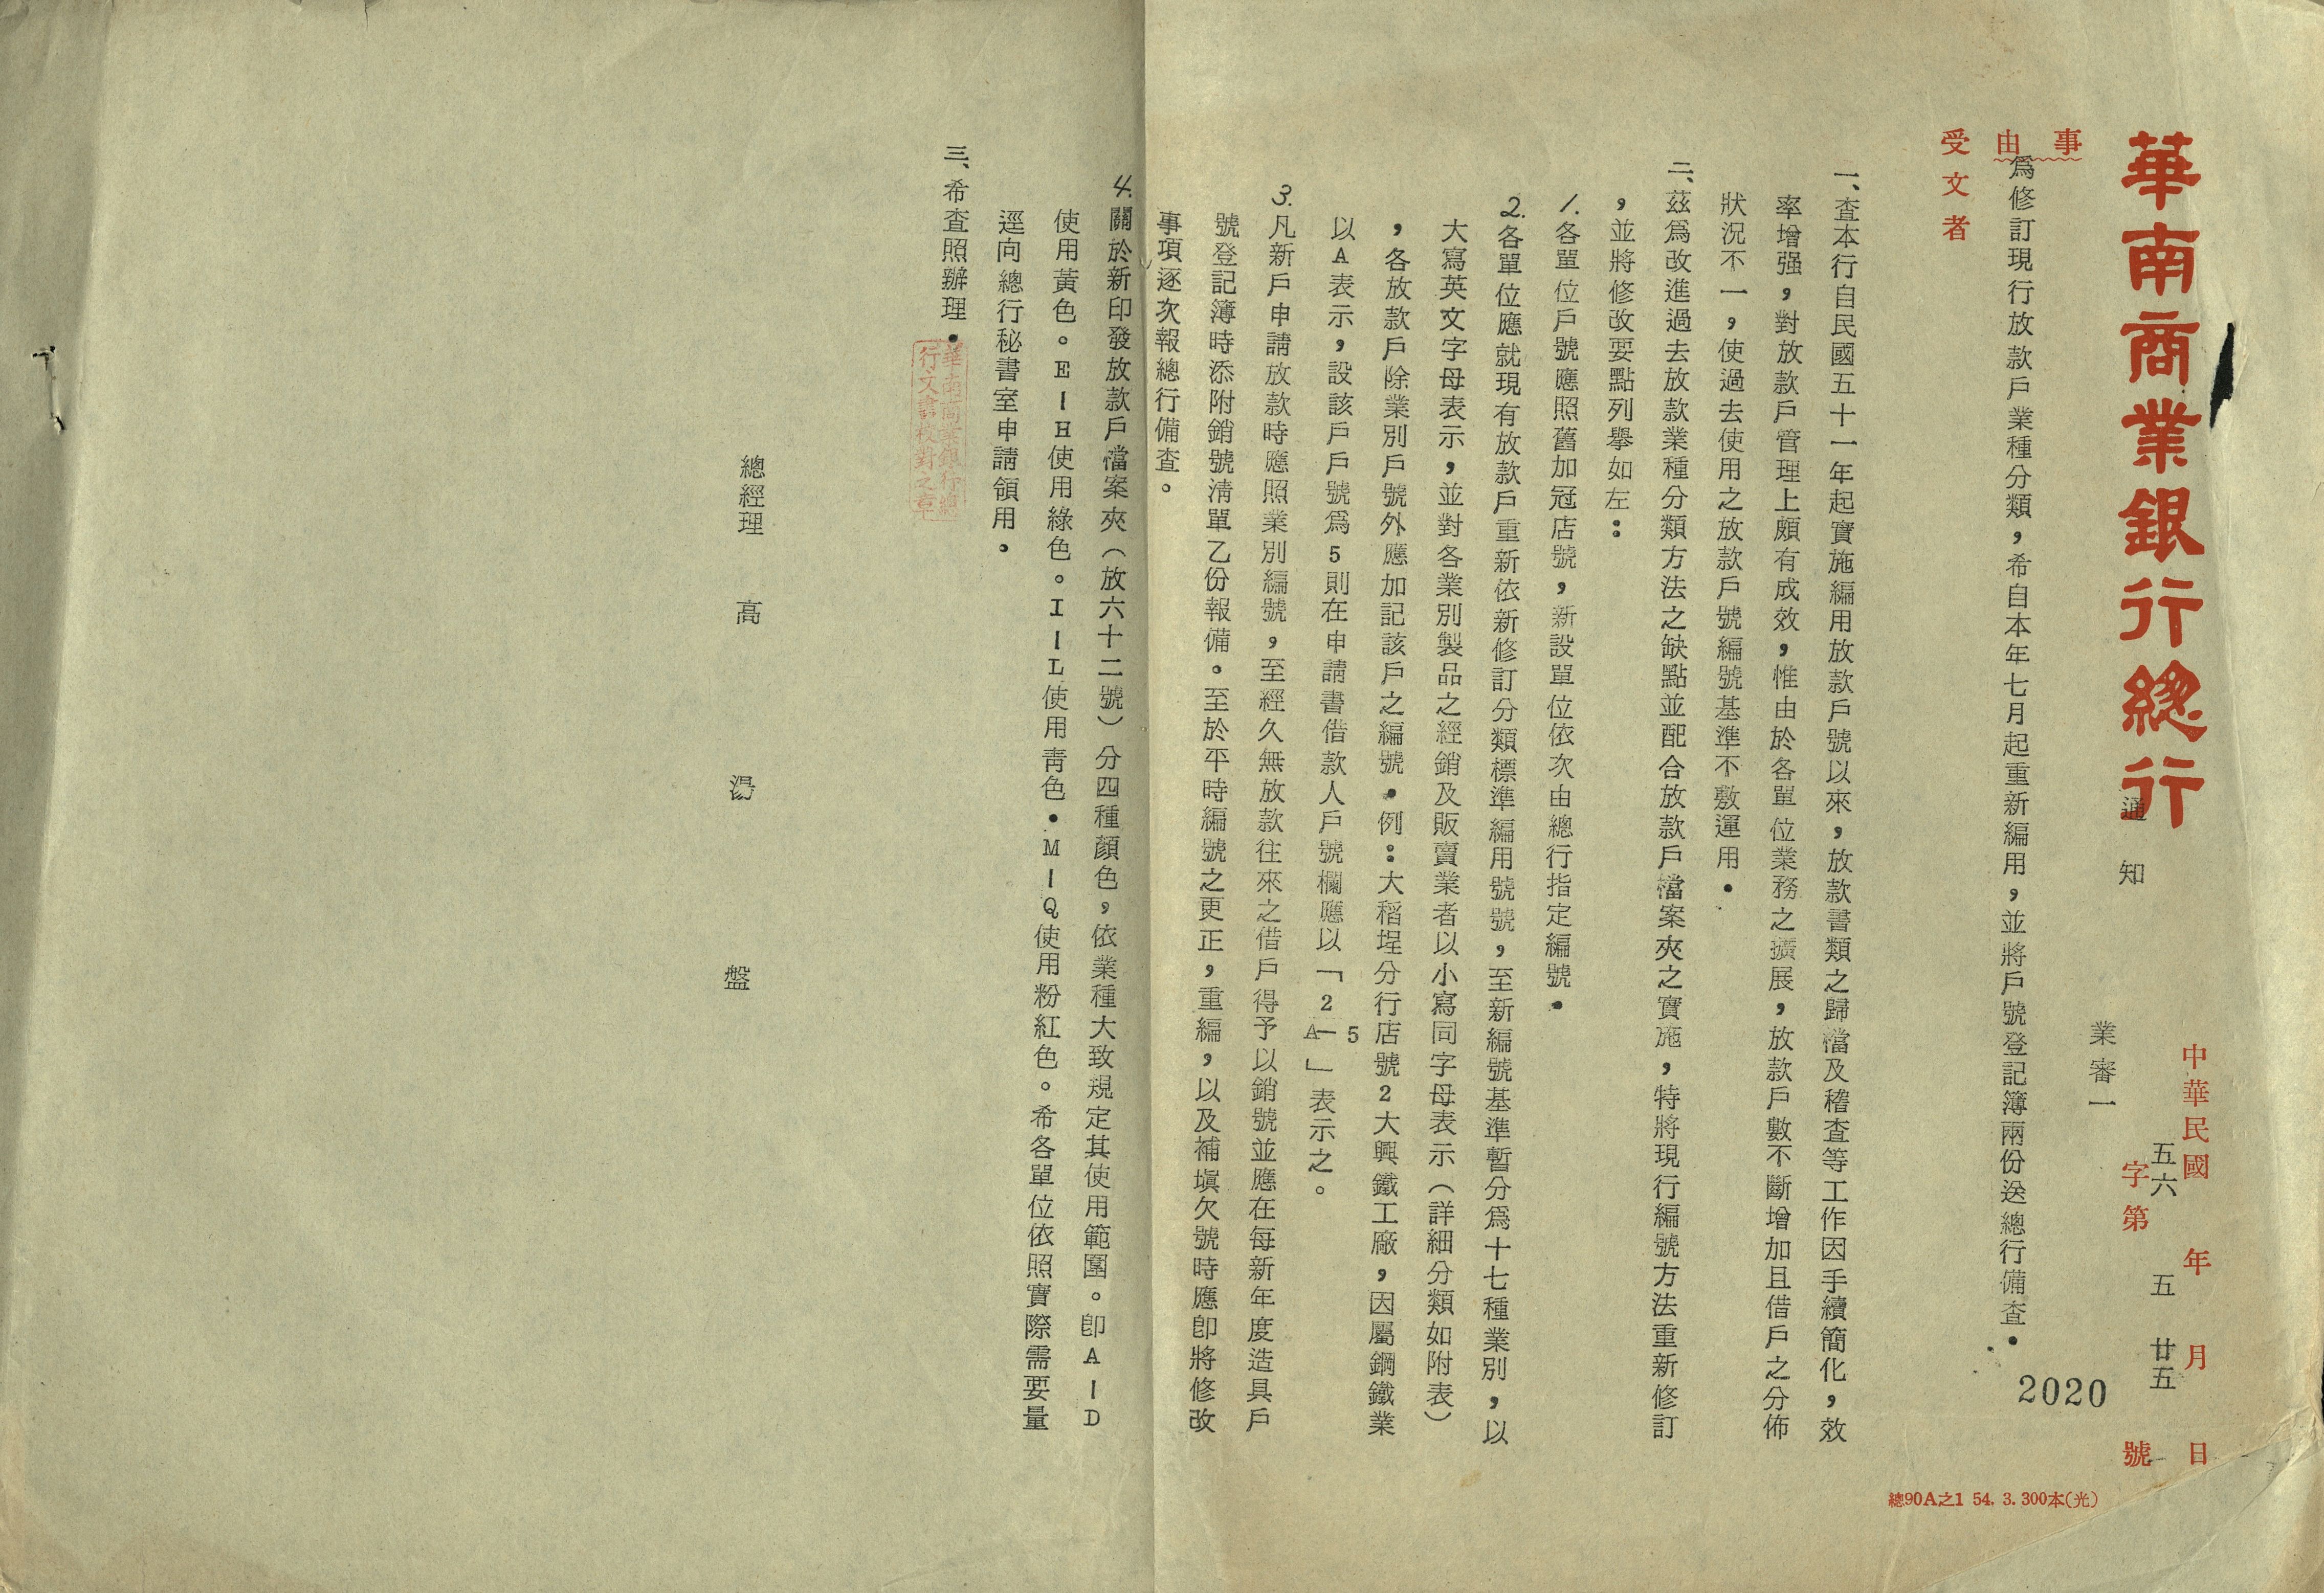 華南商業銀行總行
通知
中華民國五六年五月廿五日
業審一字第2020號
事由
為修訂現行放款戶業種分類，希自本年七月起重新編用，並將戶號登記簿兩份送總行備查．
受文者
一、查本行自民國五十一年起實施編用放款戶號以來，放款書類之歸檔及稽查等工作因手續簡化，效
率增强，對放款戶管理上頗有成效，惟由於各單位業務之擴展，放款戶數不斷增加且借戶之分佈
狀況不一，使過去使用之放款戶號編號基準不敷運用．
二、茲為改進過去放款業種分類方法之缺點並配合放款戶檔案夾之實施，特將現行編號方法重新修訂
，並將修改要點列舉如左：
1.各單位戶號應照舊加冠店號，新設單位依次由總行指定編號．
2.各單位應就現有放款戶重新依新修訂分類標準編用號號，至新編號基準暫分為十七種業別，以
大寫英文字母表示，並對各業別製品之經銷及販賣業者以小寫同字母表示（詳細分類如附表）
，各放款戶除業別戶號外應加記該戶之編號．例：大稻埕分行店號2大興鐵工廠，因屬鋼鐵業
以A表示，設該戶戶號為5則在申請書借款人戶號欄應以「2A—5」表示之。
3.凡新戶申請放款時應照業別編號，至經久無放款往來之借戶得予以銷號並應在每新年度造具戶
號登記簿時添附銷號清單乙份報備。至於平時編號之更正，重編，以及補塡欠號時應卽將修改
事項逐次報總行備查。
4.關於新印發放款戶檔案夾（放六十二號）分四種顏色，依業種大致規定其使用範圍。卽A—D
使用黃色。E—H使用綠色。I—L使用靑色．M—Q使用粉紅色。希各單位依照實際需要量
逕向總行秘書室申請領用．
三、希查照辦理．
華南商業銀行總
行文書校對之章
總經理 高湯盤
總90A之1 54. 3. 300本(光)